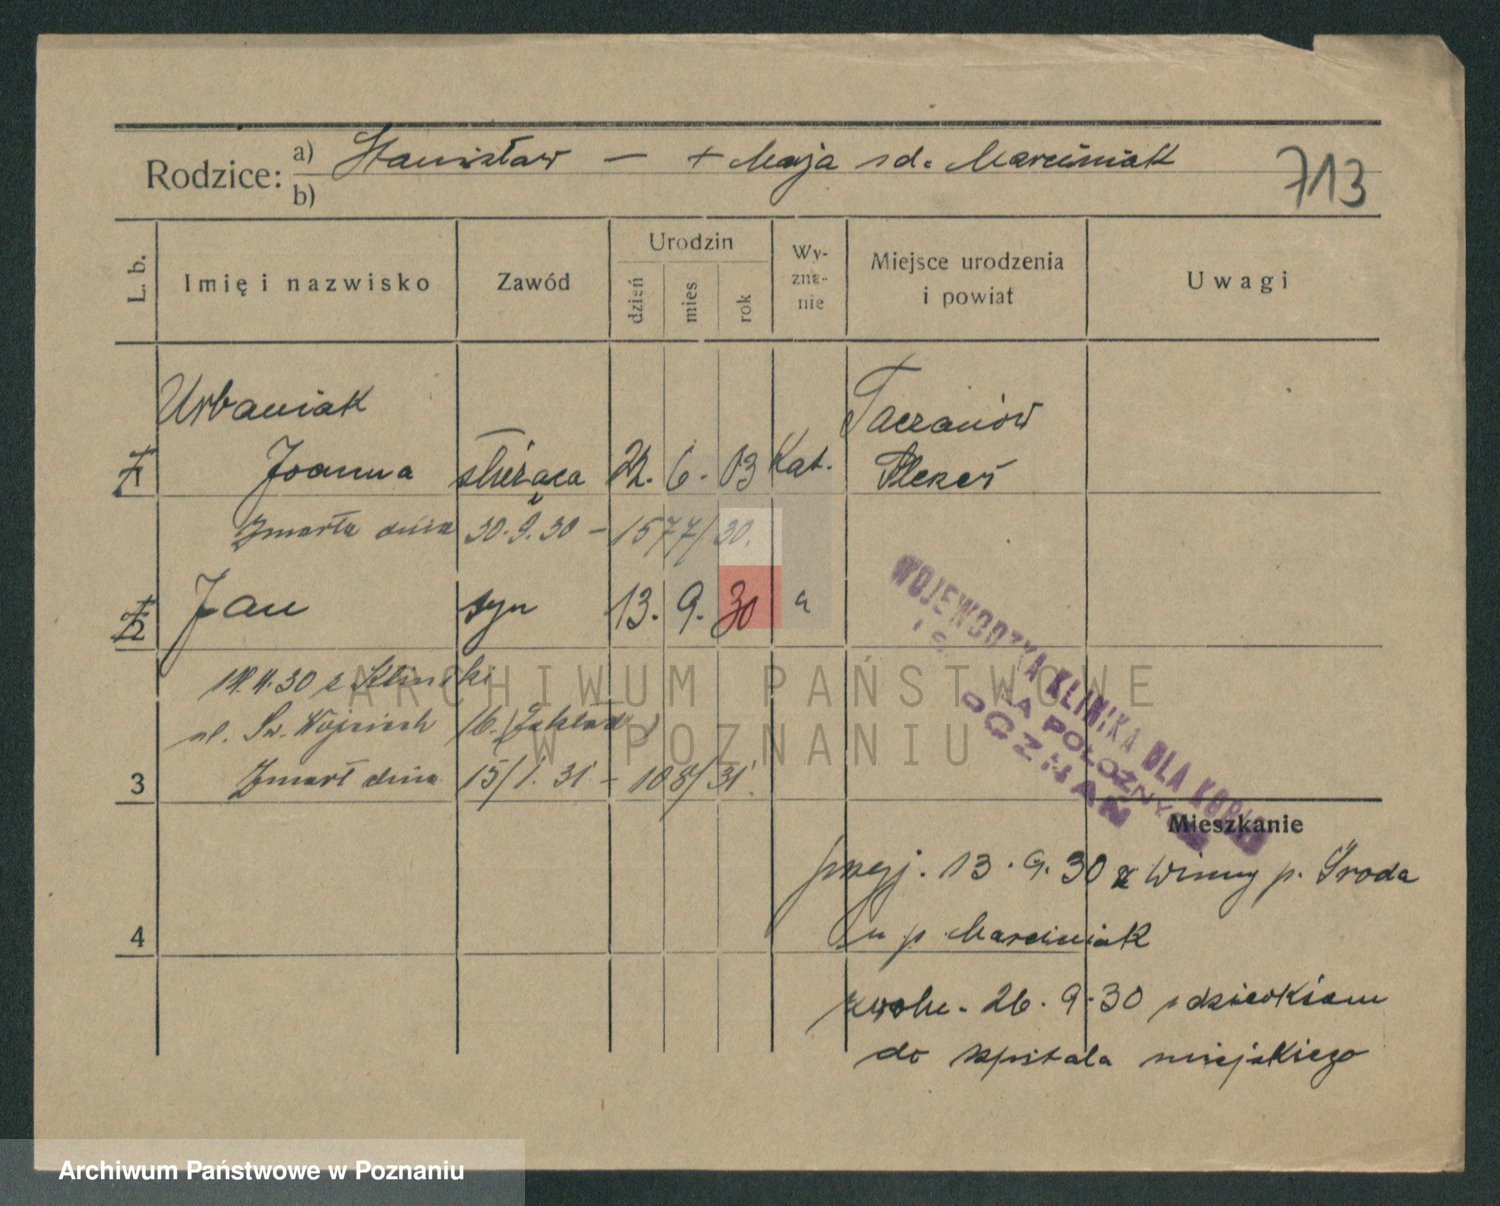 Rodzice: a) Stanisław — + Marja z d. Marciniak
b)
713
L. b.
Imię i nazwisko
Zawód
Urodzin
dzień
mies
rok
Wy-
zna-
nie
Miejsce urodzenia
i powiat
Uwagi
Urbaniak
Taczanów
1 Joanna służąca 22. 6. 03 Kat. Pleszew
Zmarła dnia 30.9.30 – 1577/30.
2 Jan syn 13. 9. 30 "
ul. Św. Wojciech 16. (Zakład)
3 Zmarł dnia 15/1. 31 – 108/31.
WOJEWÓDZKA KLINIKA DLA KOBIET
POŁOŻNYCH
POZNAŃ
Mieszkanie
przyj. 13.9.30 z Winny p. Środa
4 u p Marciniak
zwoln. 26.9.30 z dzieckiem
do szpitala miejskiego
ARCHIWUM PAŃSTWOWE
W POZNANIU
Archiwum Państwowe w Poznaniu